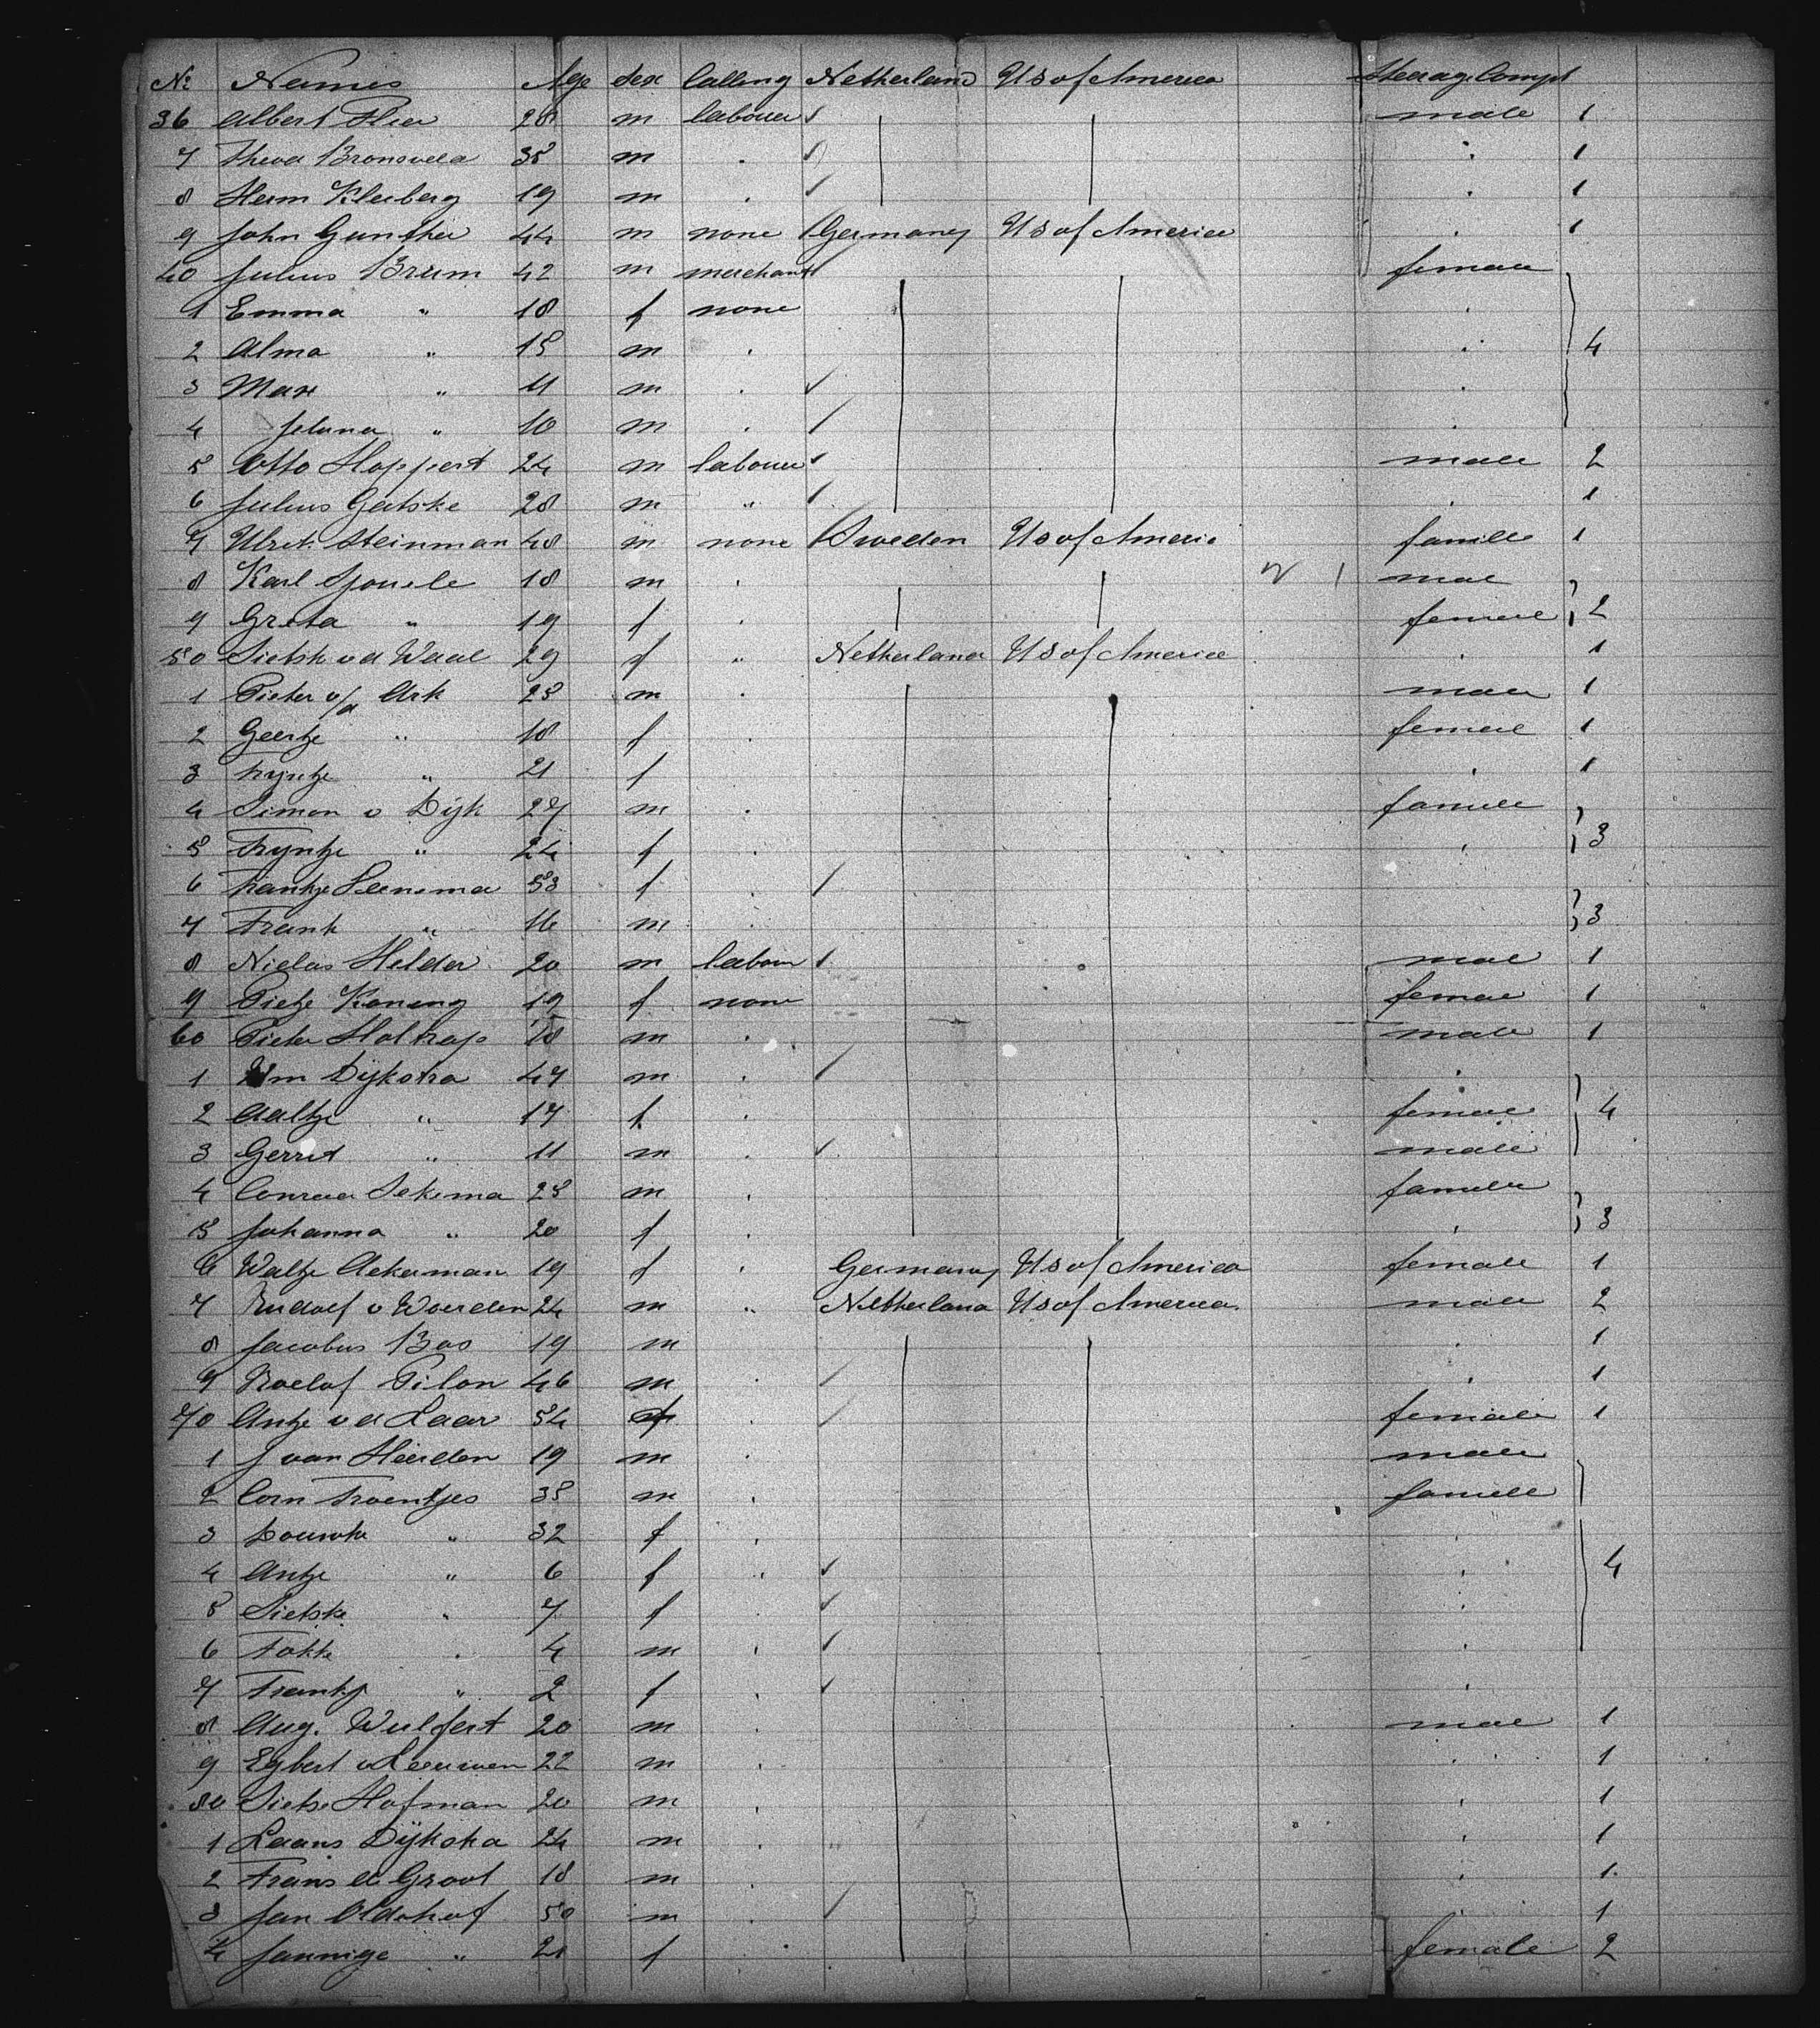 No Names Age Sex Calling Netherland US of America Steerage Compt
36 Albert 28 m labourer male 1
7 Theod Bronsveld 35 m " " 1
8 Herm Kleiberg 19 m " " 1
9 John Gunther 44 m none Germany US of America " 1
40 Julius Brum 42 m merchant
1 Emma " 18 f none "
2 Alma " 15 m " " 4
3 Max " 11 m " "
4 " 10 m " "
5 Otto Hoppert 24 m labourer male 2
6 Julius Gatske 28 m " " 1
7 Steinman 48 m none Sweden US of Americ famille 1
8 Karl 18 m " male
9 Greta " 19 f " female 2
50 Sietsk v d Waal 29 f " Netherland US of America " 1
1 Pieter v/d Ark 25 m " male 1
2 Geertje " 18 f " female 1
3 Trijntje " 21 f " 1
4 Simon v Dijk 27 m " famille
5 Trijntje " 24 f " " 3
6 53 f "
7 Frank " 16 m " 3
8 Niclas Helder 20 m labour male 1
9 Pietje Koning 19 f none female 1
60 Pieter Holtrop 18 m " male 1
1 Wm Dijkstra 47 m " "
2 Aaltje " 17 f " female 4
3 Gerrit " 11 m " male
4 Conrad Sekema 25 m " famille
5 Johanna " 20 f " " 3
6 Waltje Ackerman 19 f " Germany US of America female 1
7 Rudolf v Woerden 24 m " Netherland US of America male 2
8 Jacobus Bos 19 m " 1
9 Roelof Pilon 46 m " " 1
70 Antje v d Laar 54 f " female 1
1 J van Heerden 19 m " male
2 Corn Troentjes 35 m " famille
3 Douwke " 32 f " "
4 Antje " 6 f " " 4
5 Sietske " 7 f " "
6 Fokke " 4 m " "
7 Frankj " 2 f " "
8 Aug. Wulfert 20 m " male 1
9 Egbert v Leeuwen 22 m " " 1
80 Sietse Hofman 20 m " " 1
1 Laans Dijkstra 24 m " " 1
2 Frans de Groot 18 m " " 1
3 Jan Oldehof 50 m " " 1
4 Jannigje " 21 f " female 2